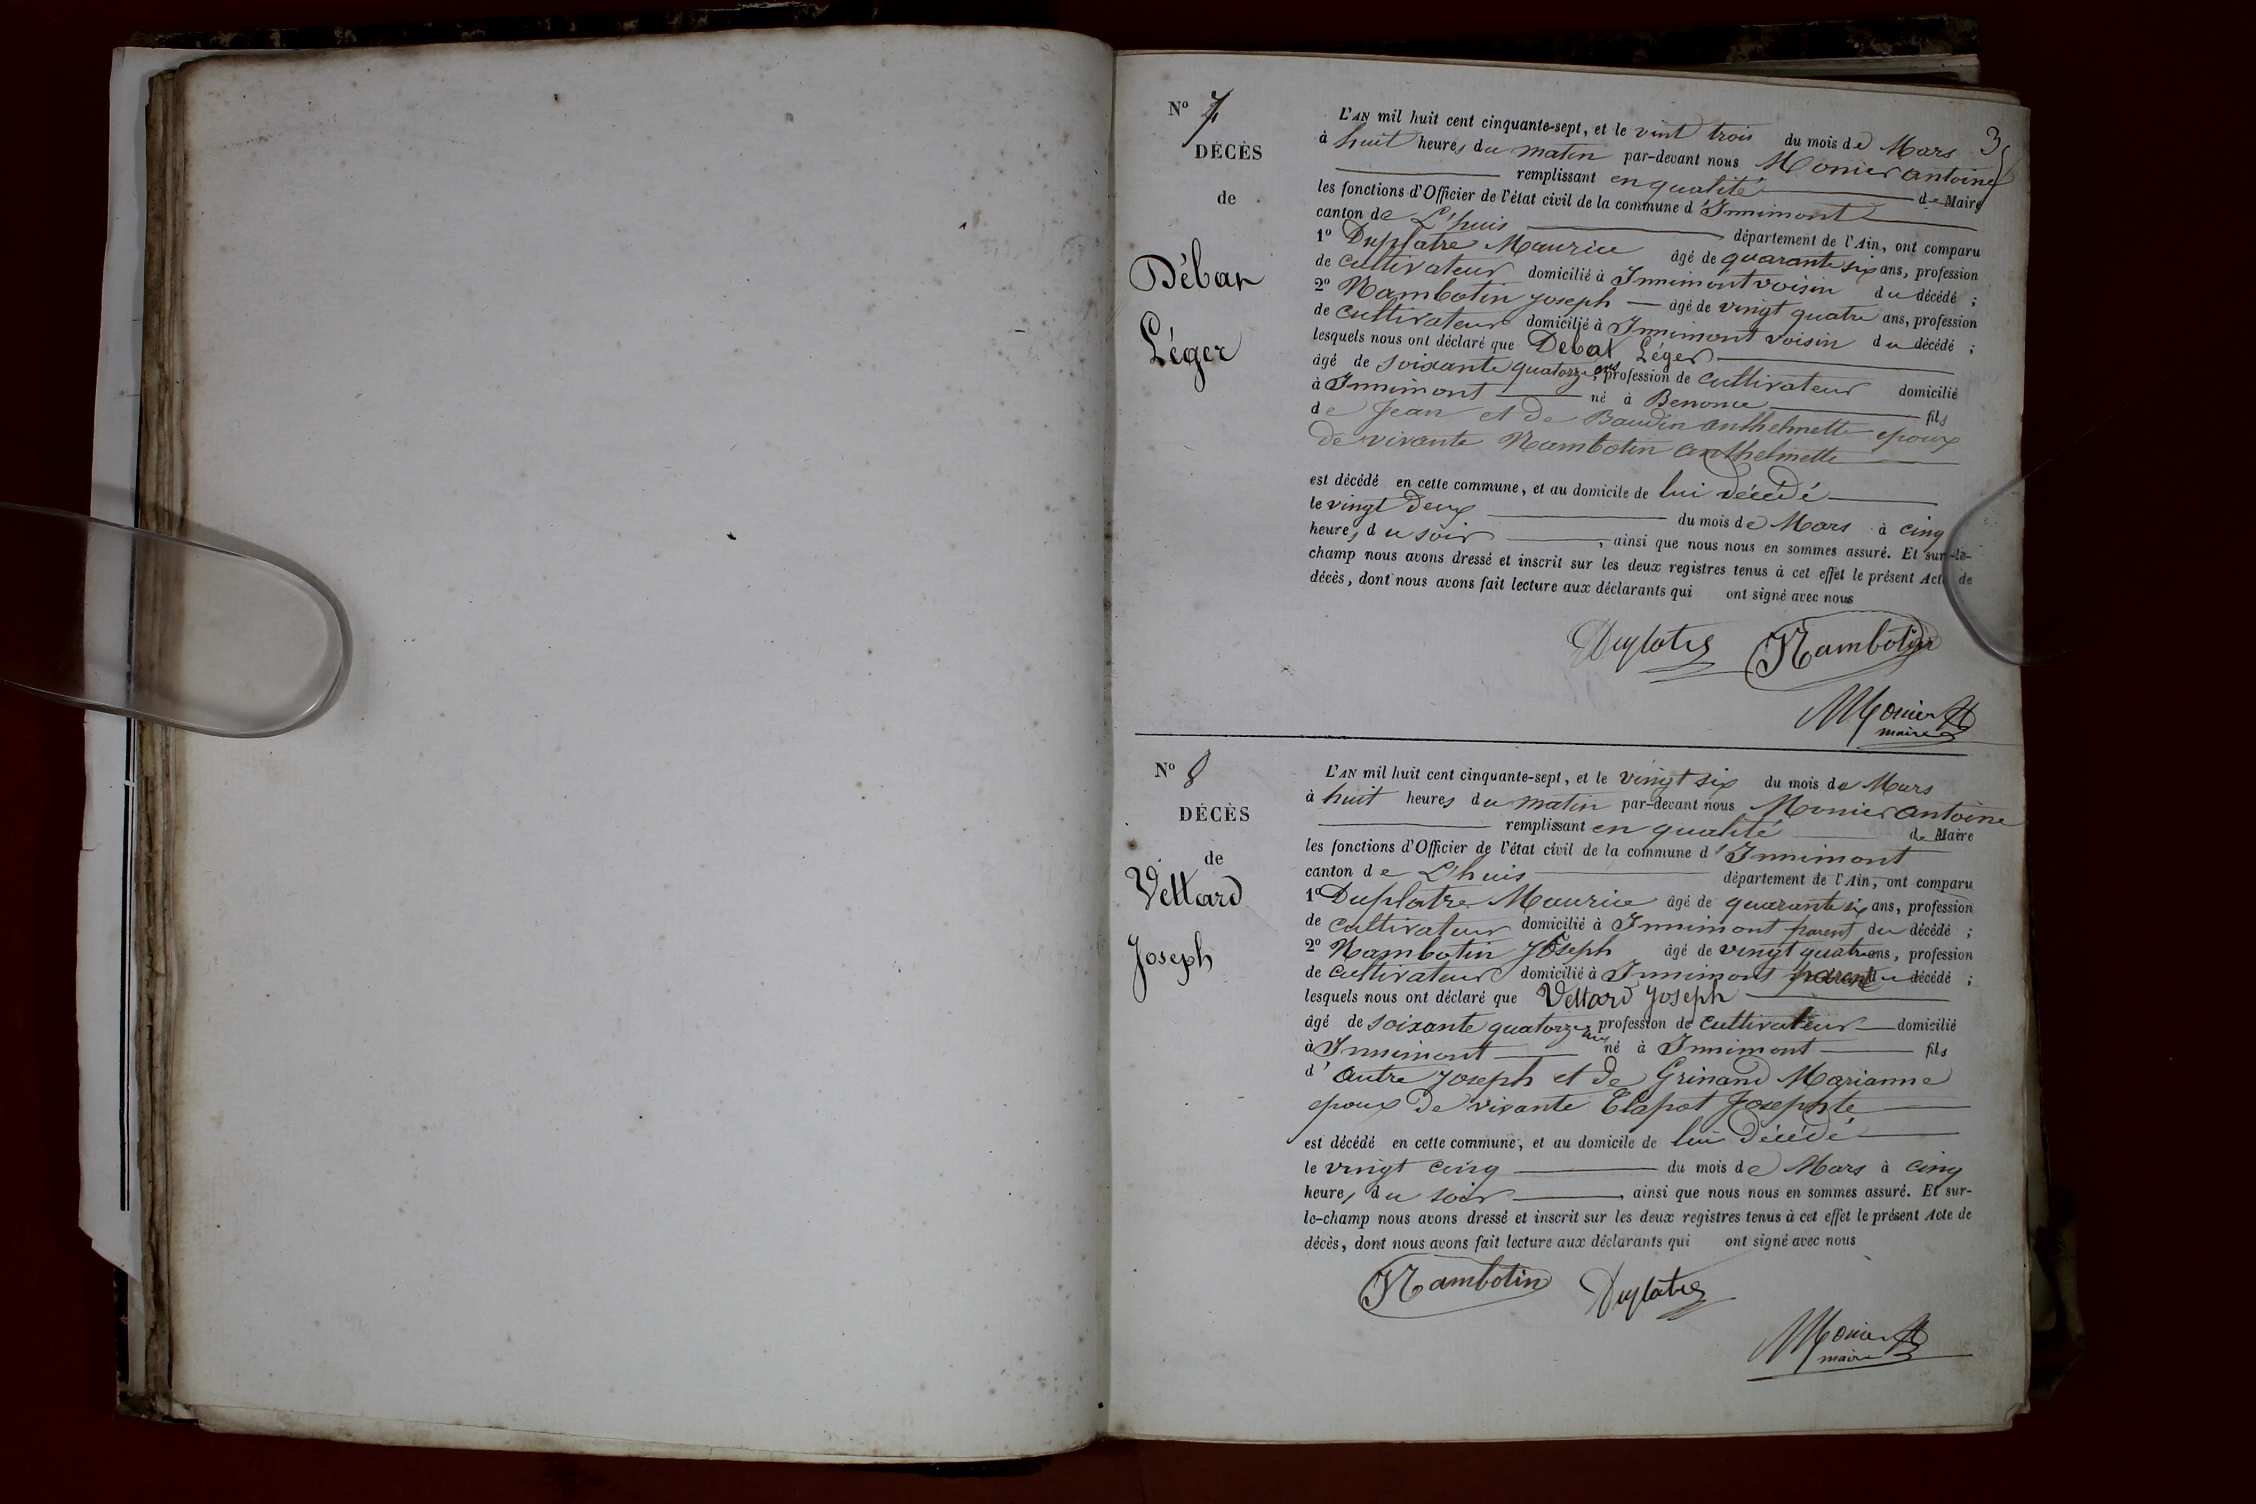 3
Nº 7
DÉCÈS
de
Débar
Léger
L'AN mil huit cent cinquante-sept, et le vint trois du mois de Mars
à huit heures du matin par-devant nous Monier antoine
remplissant en qualité de Maire
les fonctions d'Officier de l'état civil de la commune d'Innimont
canton de L'huis département de l'Ain, ont comparu
1º Duplatre Maurice âgé de quarante six ans, profession
de cultivateur domicilié à Innimont voisin du décédé ;
2º Nambotin joseph âgé de vingt quatre ans, profession
de cultivateur domicilié à Innimont voisin du décédé ;
lesquels nous ont déclaré que Debat Léger
âgé de soixante quatorze ans, profession de cultivateur domicilié
à Innimont né à Benonce fils
de Jean et de Baudin anthelmette epoux
de vivante Nambotin anthelmette
est décédé en cette commune, et au domicile de lui décédé
le vingt deux du mois de Mars à cinq
heures du soir, ainsi que nous nous en sommes assuré. Et sur-le-
champ nous avons dressé et inscrit sur les deux registres tenus à cet effet le présent Acte de
décès, dont nous avons fait lecture aux déclarants qui ont signé avec nous
Duplatre Nambotin
Monier
maire
Nº 8
DÉCÈS
de
Vettard
Joseph
L'AN mil huit cent cinquante-sept, et le vingt six du mois de Mars
à huit heures du matin par-devant nous Monier antoine
remplissant en qualité de Maire
les fonctions d'Officier de l'état civil de la commune d'Innimont
canton de L'huis département de l'Ain, ont comparu
1º Duplatre Maurice âgé de quarante six ans, profession
de cultivateur domicilié à Innimont parent du décédé ;
2º Nambotin joseph âgé de vingt quatre ans, profession
de cultivateur domicilié à Innimont parent du décédé ;
lesquels nous ont déclaré que Vettard joseph
âgé de soixante quatorze ans profession de cultivateur domicilié
à Innimont né à Innimont fils
d'autre joseph et de Grinand Marianne
epoux de vivante Clapot Josephte
est décédé en cette commune, et au domicile de lui décédé
le vingt cinq du mois de Mars à cinq
heures du soir, ainsi que nous nous en sommes assuré. Et sur-
le-champ nous avons dressé et inscrit sur les deux registres tenus à cet effet le présent Acte de
décès, dont nous avons fait lecture aux déclarants qui ont signé avec nous
Nambotin Duplatre
Monier
maire